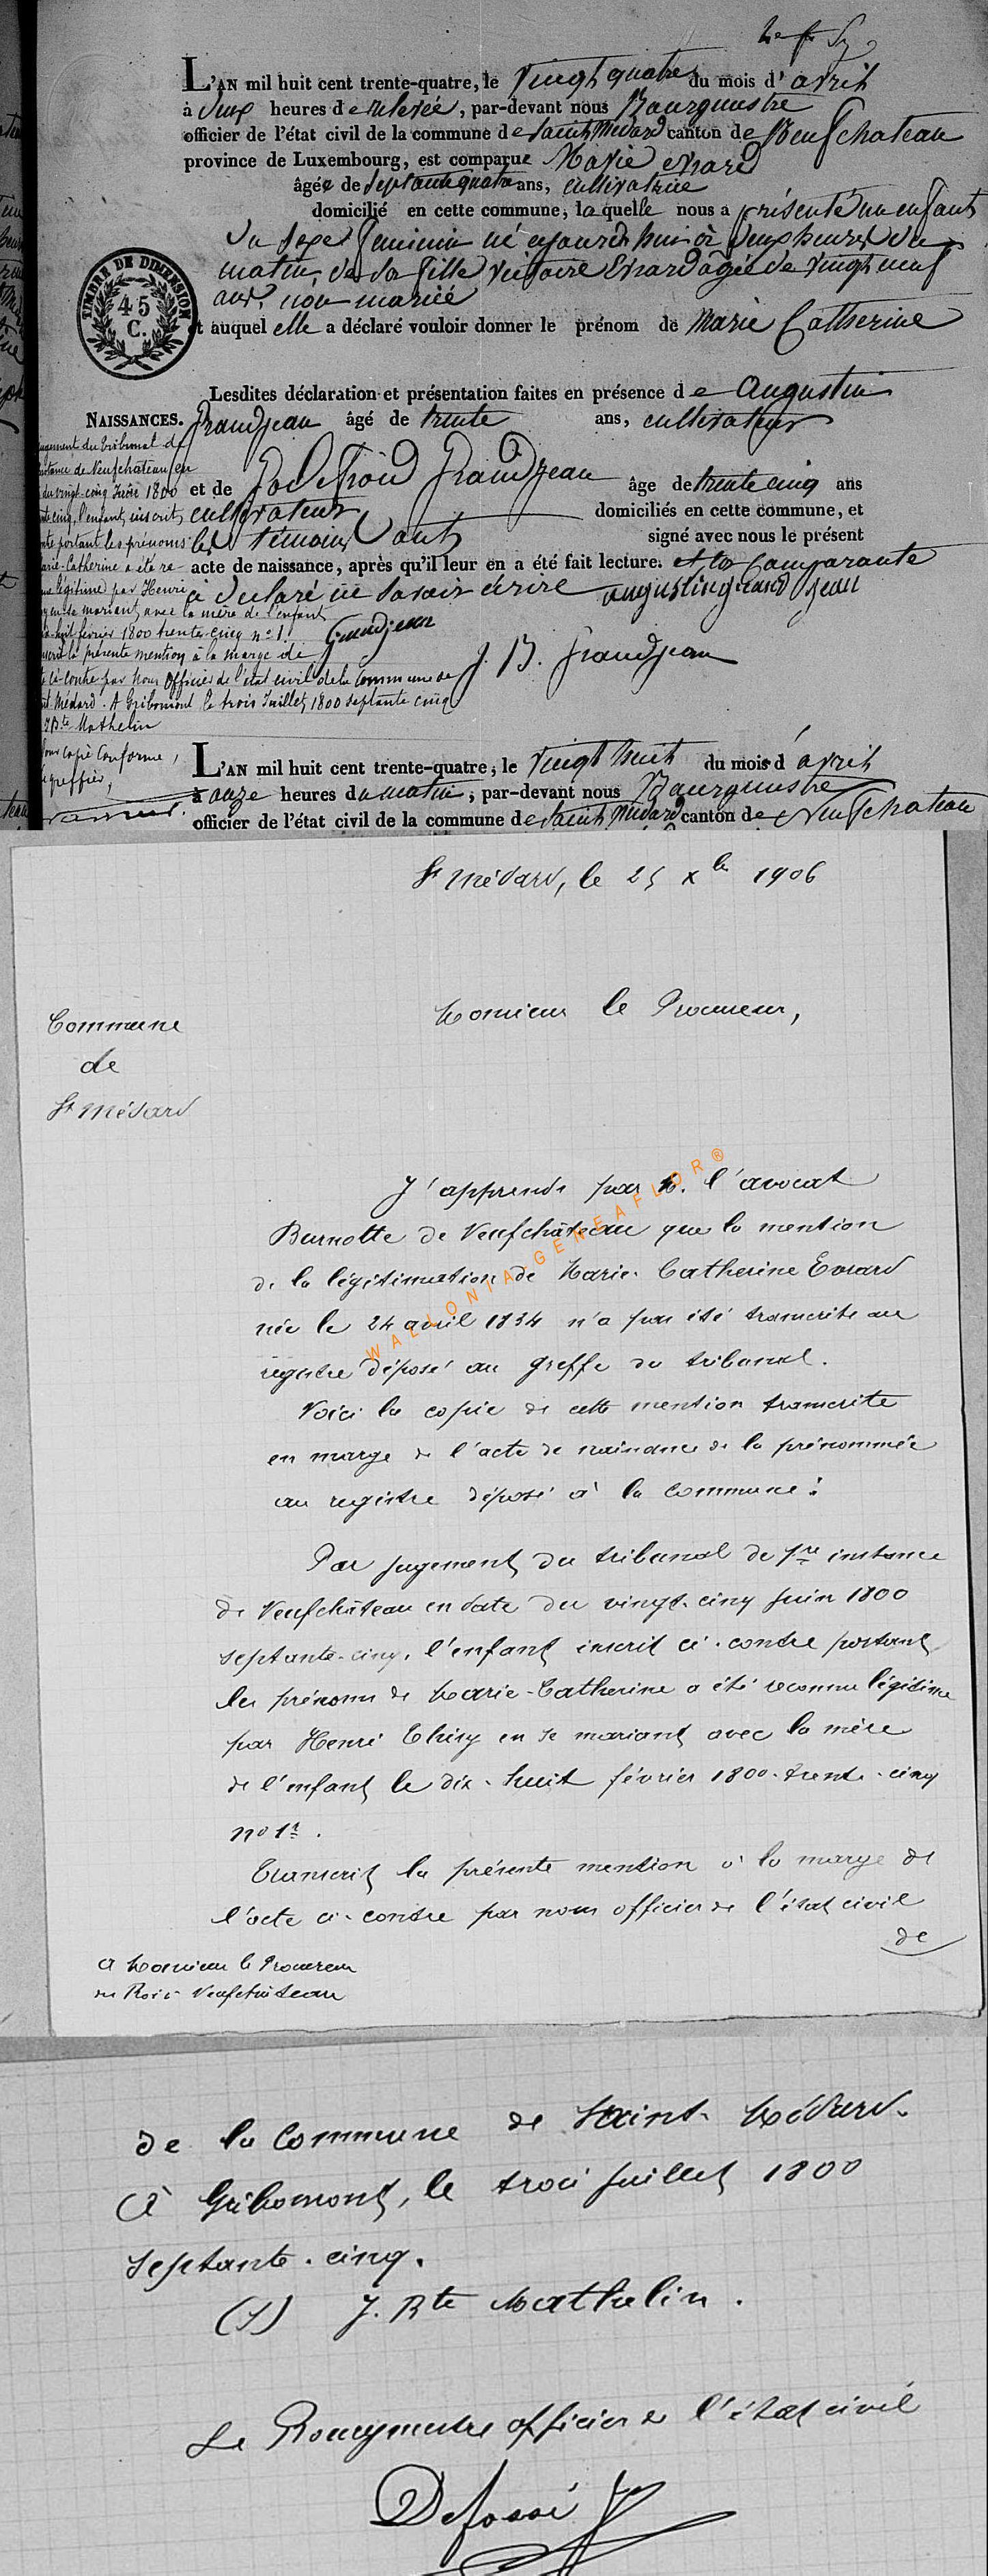 L'AN mil huit cent trente-quatre, le vingt quatre du mois d'avril
à deux heures de relevée, par-devant nous Bourgmestre
officier de l'état civil de la commune de Saint Médard canton de Neufchateau
province de Luxembourg, est comparue Marie Evrard
âgée de septante quatre ans, cultivatrice
domicilié en cette commune, laquelle nous a présenté un enfant
du sexe feminin né ajourd'hui à deux heures du
matin, de sa fille victoire Evrard âgée de vingt neuf
ans, non mariée
et auquel elle a déclaré vouloir donner le prénom de Marie Catherine
TIMBRE DE DIMENSION
45
C.
Lesdites déclaration et présentation faites en présence de Augustin
Grandjean âgé de trente ans, cultivateur
et de Godefroid Grandjean âge de trente cinq ans
cultivateur domiciliés en cette commune, et
les témoins ont signé avec nous le présent
acte de naissance, après qu'il leur en a été fait lecture. et la comparante
à declaré ne savoir écrire augustin grandjean
Grandjean
J. B. Grandjean
NAISSANCES.
jugement du tribunal de
instance de Neufchâteau en
du vingt-cinq Juin 1800
cinq, l'enfant inscrit
portant les prénoms
Marie-Catherine a été re
légitime par Henri
en se mariant avec la mère de l'enfant
huit février 1800 trente-cinq n° 1.
la présente mention à la marge de
ci-contre par Nous Officier de l'état civil de la Commune de
Médard. A Gribomont le trois Juillet 1800 septante cinq
J Bte Mathelin
Pour copie conforme,
greffier,
L'AN mil huit cent trente-quatre, le vingt huit du mois d'avril
à onze heures du matin, par-devant nous Bourgmestre
officier de l'état civil de la commune de Saint Médard canton de Neufchateau
St Médard, le 25 Xbre 1906
Commune
de
St Médard
Monsieur le Procureur,
J'apprends par M. l'avocat
Burnotte de Neufchâteau que la mention
de la légitimation de Marie-Catherine Evrard
née le 24 avril 1834 n'a pas été transcrite au
registre déposé au greffe du tribunal.
Voici la copie de cette mention transcrite
en marge de l'acte de naissance de la prénommée
au registre déposé à la commune :
Par jugement du tribunal de 1re instance
de Neufchâteau en date du vingt-cinq juin 1800
septante-cinq, l'enfant inscrit ci-contre portant
les prénoms de Marie-Catherine a été reconnu légitime
par Henri Thiry en se mariant avec la mère
de l'enfant le dix-huit février 1800-trente-cinq
no 1r.
Transcrit la présente mention à la marge de
l'acte ci-contre par nous officier de l'état civil
de
A Monsieur le Procureur
du Roi à Neufchâteau
WALLONIA-GENEAFLOR®
de la Commune de Saint-Médard.
A Gribomont, le trois juillet 1800
septante-cinq.
(S) J. Bte Mathelin.
Le Bourgmestre officier de l'état civil
Defossé J